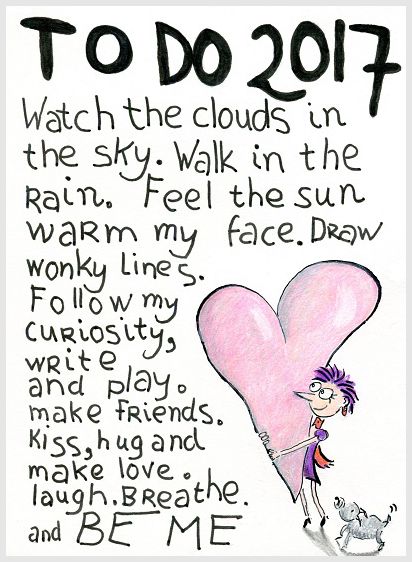 TO DO 2017
Watch the clouds in
the sky. Walk in the
Rain. Feel the sun
warm my face. Draw
wonky lines.
Follow my
curiosity,
write
and play.
make friends.
Kiss, hug and
make love.
laugh. BReathe.
and BE ME